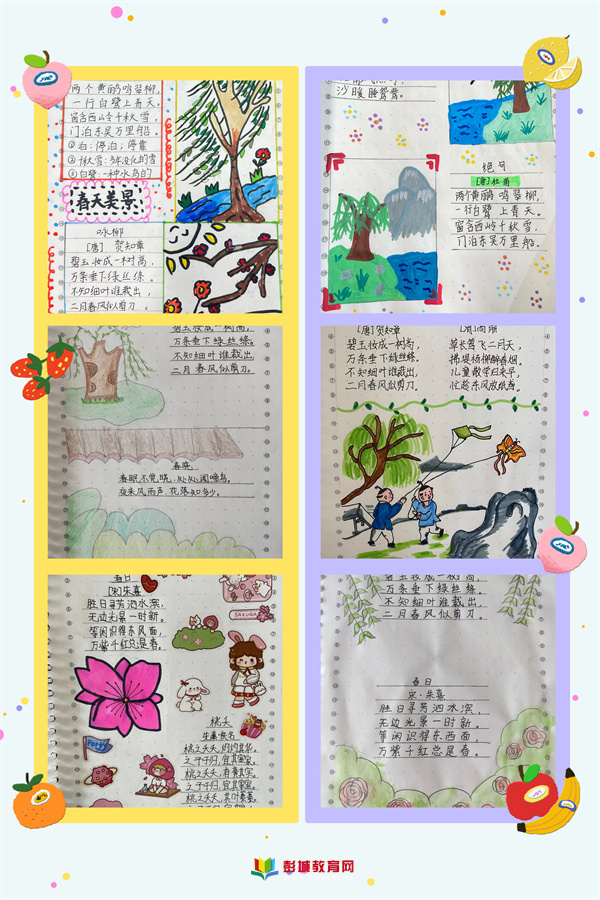 两个黄鹂鸣翠柳，
一行白鹭上青天。
门泊东吴万里船。
①泊：停泊；停靠
③白鹭：一种水鸟的
春天美景
咏柳
[唐] 贺知章
碧玉妆成一树高，
万条垂下绿丝绦。
不知细叶谁裁出，
二月春风似剪刀。
沙暖睡鸳鸯。
绝句
[唐]杜甫
两个黄鹂鸣翠柳，
一行白鹭上青天。
门泊东吴万里船。
碧玉妆成一树高，
万条垂下绿丝绦。
不知细叶谁裁出，
二月春风似剪刀。
春晓
春眠不觉晓，处处闻啼鸟。
夜来风雨声，花落知多少。
[唐]贺知章
碧玉妆成一树高，
万条垂下绿丝绦。
不知细叶谁裁出，
二月春风似剪刀。
草长莺飞二月天，
拂堤杨柳醉春烟。
儿童散学归来早，
忙趁东风放纸鸢。
春日
[宋]朱熹
胜日寻芳泗水滨，
无边光景一时新。
等闲识得东风面，
万紫千红总是春。
SAKURA
Party
桃夭
桃之夭夭，灼灼其华。
之子于归，宜其室家。
桃之夭夭，有蕡其实。
之子于归，宜其家室。
桃之夭夭，其叶蓁蓁。
碧玉妆成一树高，
万条垂下绿丝绦。
不知细叶谁裁出，
二月春风似剪刀。
春日
宋·朱熹
胜日寻芳泗水滨，
无边光景一时新。
等闲识得东西面，
万紫千红总是春。
彭城教育网